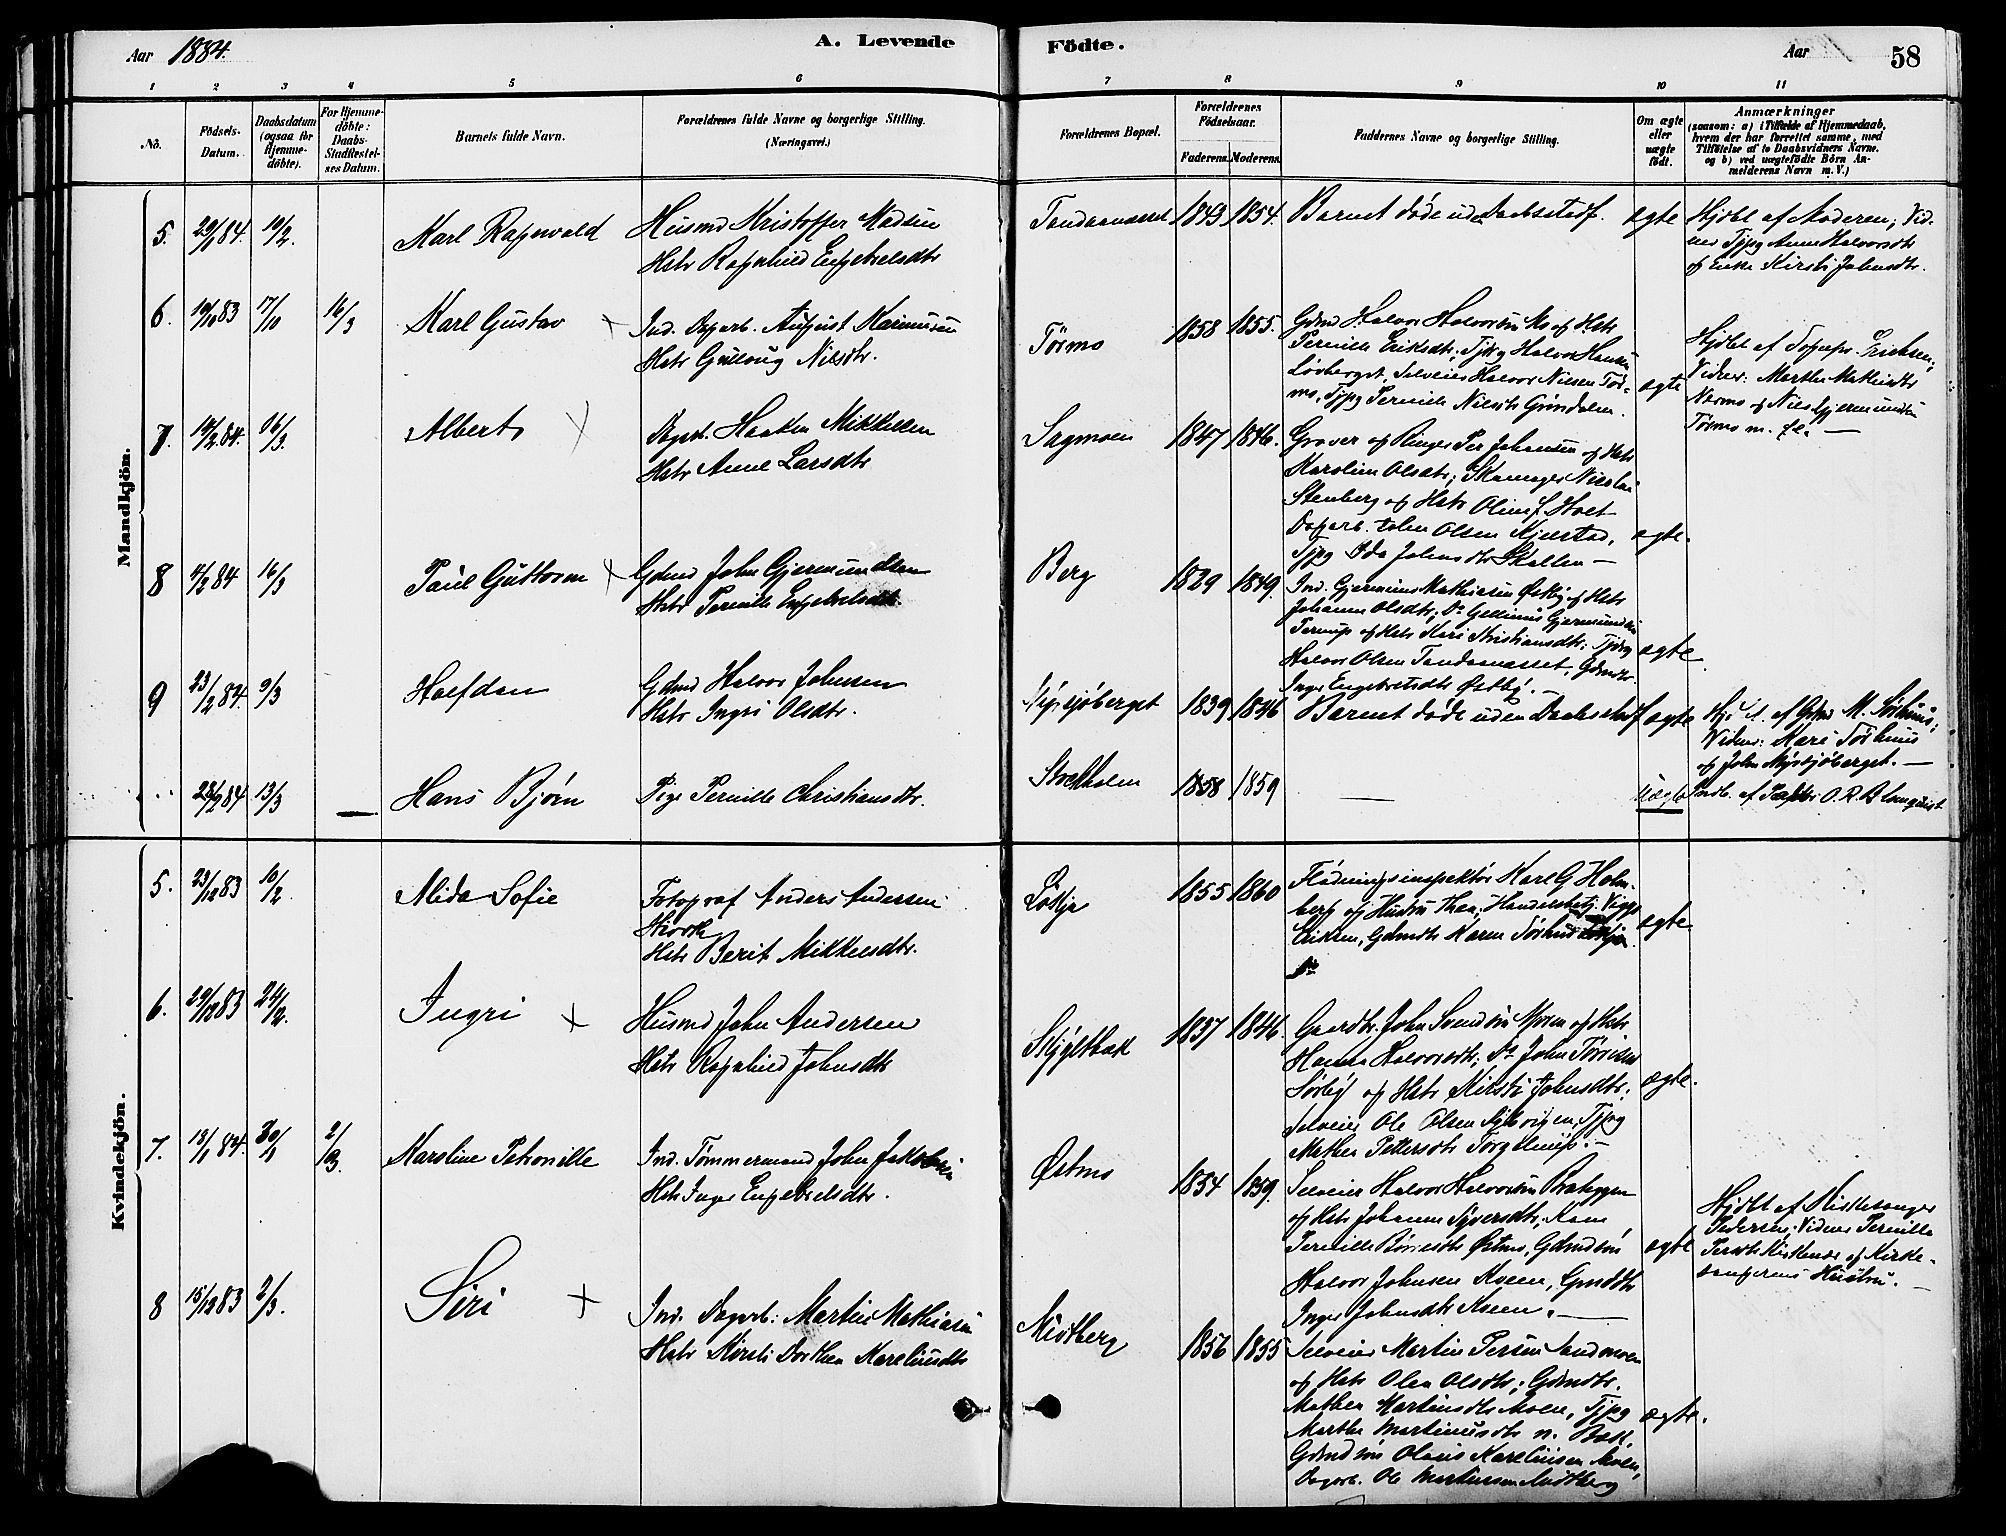 Aar 1884.
A. Levende
Födte.
Aar
58
1 2 3 4 5 6 7 8 9 10 11
No.
Födsels-Datum.
Daabsdatum (ogsaa for Hjemme-döbte).
For Hjemme-döbte: Daabs-Stadfæstel-ses Datum.
Barnets fulde Navn.
Forældrenes fulde Navne og borgerlige Stilling.
(Næringsvei.)
Forældrenes Bopæl.
Forældrenes Födselsaar.
Faderens. Moderens.
Faddernes Navne og borgerlige Stilling.
Om ægte eller uægte födt.
Anmærkninger
(saasom: a) i Tilfælde af Hjemmedaab,
hvem der har forrettet samme, med
Tilföielse af to Daabsvidners Navne.
og b) ved uægtefödte Börn An-
melderens Navn m. V.)
Mandkjön.
5. 29/1 84. 10/2. Karl Ragnvald
Husmd Kristoffer Madsen
Hstr Ragnhild Engebretsdtr
1849 1854. Barnet døde uden Daabsstadf. ægte
Hjdbt af Moderen; Vid-
ner Tjpg Anne Halvorsdtr
og Enke Kirsti Johnsdtr.
6. 10/10 83 17/10 16/3 Karl Gustav
Ind. Dagarb. August Rasmussen
Hstr Gulloug Nilsdtr.
Törmo 1858 1855.
Gdmd Halvor Halvorsen Mo og Hstr
Pernille Eriksdtr, Tjdrg Halvor Hansen
Løvberget, Selveier Halvor Nilsen Tör-
mo, Tjpg Pernille Nilsdtr Grindalen.
ægte
Vidner: Marthe Mathisdtr
Törmo m. fl. —
7. 19/2 84. 16/3. Albert
Dagarb. Haaken Mikkelsen
Hstr Anne Larsdtr
Sagmoen 1847 1846.
Graver og Ringer Per Johansen og Hstr
Karoline Olsdtr; Skomager Nicolai
Stenberg og Hstr Oline J. Holt
Dagarb. John Olsen Kjelstad,
Tjpg Ida Johnsdtr Skallen —
ægte.
8 4/2 84 16/3 Paul Guttorm
Gdmd John Gjermundsen
Hstr Pernille Engebretsdtr.
Berg 1829 1849.
Ind. Gjermund Mathiesen Østby og Hstr
Johanne Olsdtr; Do Gjermundsen
Terup og Hstr Kari Kristiansdtr; Tjdrg
Halvor Olsen Tandaneset, Gdmdtr.
Inger Engebretsdtr Østby. —
ægte.
9 23/2 84. 9/3 Halfdan
Gdmd Halvor Johnsen
Hstr Ingri Olsdtr.
1839 1846 Barnet døde uden Daabsstadf ægte
Hjdbt. af Gdmd M. Sörhuus;
Vidner: Kari Sörhuus
og John Myrsjöberget. —
28/2 84 13/3 — Hans Bjørn
Pige Pernille Christiansdtr.
Stockholm 1858 1859 — uægte
Indb. af Pastor O. R. Blomquist.
Kvindekjön.
5. 23/12 83 10/2 Alida Sofie
Fotograf Anders Andersen
Hstr Berit Mikkelsdtr.
Lutkja 1855 1860
Flødningsinspektör Karl G Holm-
berg og Hustru Thea; Handelsbetj. Viggo
Eriksen, Gdmdtr Karen Sörhuus
ægte
6. 29/12 83 24/2. Ingri
Husmd John Andersen
Hstr Ragnhild Johnsdtr
Skjæltbæk 1837 1846.
Gaardbr. John Svendsen Moren og Hstr
Hanna Halvorsdtr; Do John Tørrisen
Sörby og Hstr Kirsti Johnsdtr;
Selveier Ole Olsen Sykvigen, Tjpg
Mathea Pettersdtr
ægte.
7. 13/1 84. 30/1 2/3. Karoline Petronille
Ind. Tømmermand John Jakobsen
Hstr Inger Engebretsdtr.
Østmo 1854 1859.
Selveier Halvor Halvorsen
og Hstr Johanne Syversdtr, Kone
Pernille Østmo, Gdmdsön
Halvor Johnsen Kveen, Gmddtr
Inger Johnsdtr Kveen. —
ægte
Hjdbt af Kirkesanger
Pedersen; Vidner Pernille
Persdtr Kirkenær og Kirke-
sangerens Hustru. —
8 15/12 83 2/3. Siri
Ind. Dagarb. Martin Mathiesen
Hstr Kirsti Dorthea Karelinsdtr
Midtberg 1856 1855
Selveier Martin Persen Sandmoen
og Hstr Olea Olsdtr; Gdmdtr.
Mathea Martinsdtr Moen, Tjpg
Marthe Martinusdtr n. Bæk,
Gdmdsøn Olaus Karelinsen Moen,
Dagarb. Ole Martinsen Midtberg
ægte.